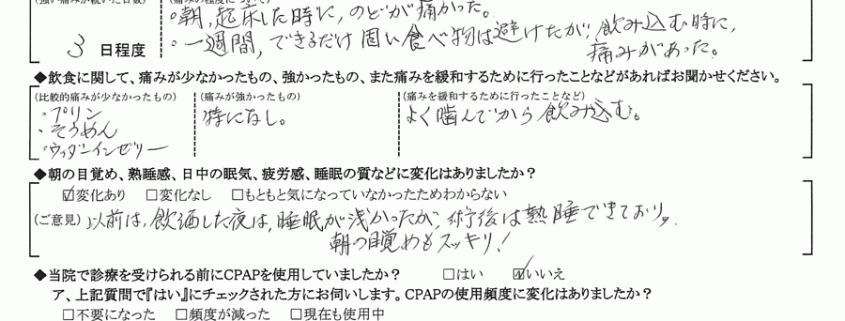 (強い痛みが続いた日数)
・朝、起床した時に、のどが痛かった。
3 日程度
・一週間、できるだけ固い食べ物は避けたが、飲み込む時に、
痛みがあった。
◆飲食に関して、痛みが少なかったもの、強かったもの、また痛みを緩和するために行ったことなどがあればお聞かせください。
(比較的痛みが少なかったもの) (痛みが強かったもの) (痛みを緩和するために行ったことなど)
・プリン 特になし。 よく噛んでから飲み込む。
・そうめん
・ウィダーインゼリー
◆朝の目覚め、熟睡感、日中の眠気、疲労感、睡眠の質などに変化はありましたか？
☑変化あり □変化なし □もともと気になっていなかったためわからない
(ご意見) 以前は、飲酒した夜は、睡眠が浅かったが、術後は熟睡できており、
朝の目覚めもスッキリ！
◆当院で診療を受けられる前にCPAPを使用していましたか？ □はい ☑いいえ
ア、上記質問で『はい』にチェックされた方にお伺いします。CPAPの使用頻度に変化はありましたか？
□不要になった □頻度が減った □現在も使用中